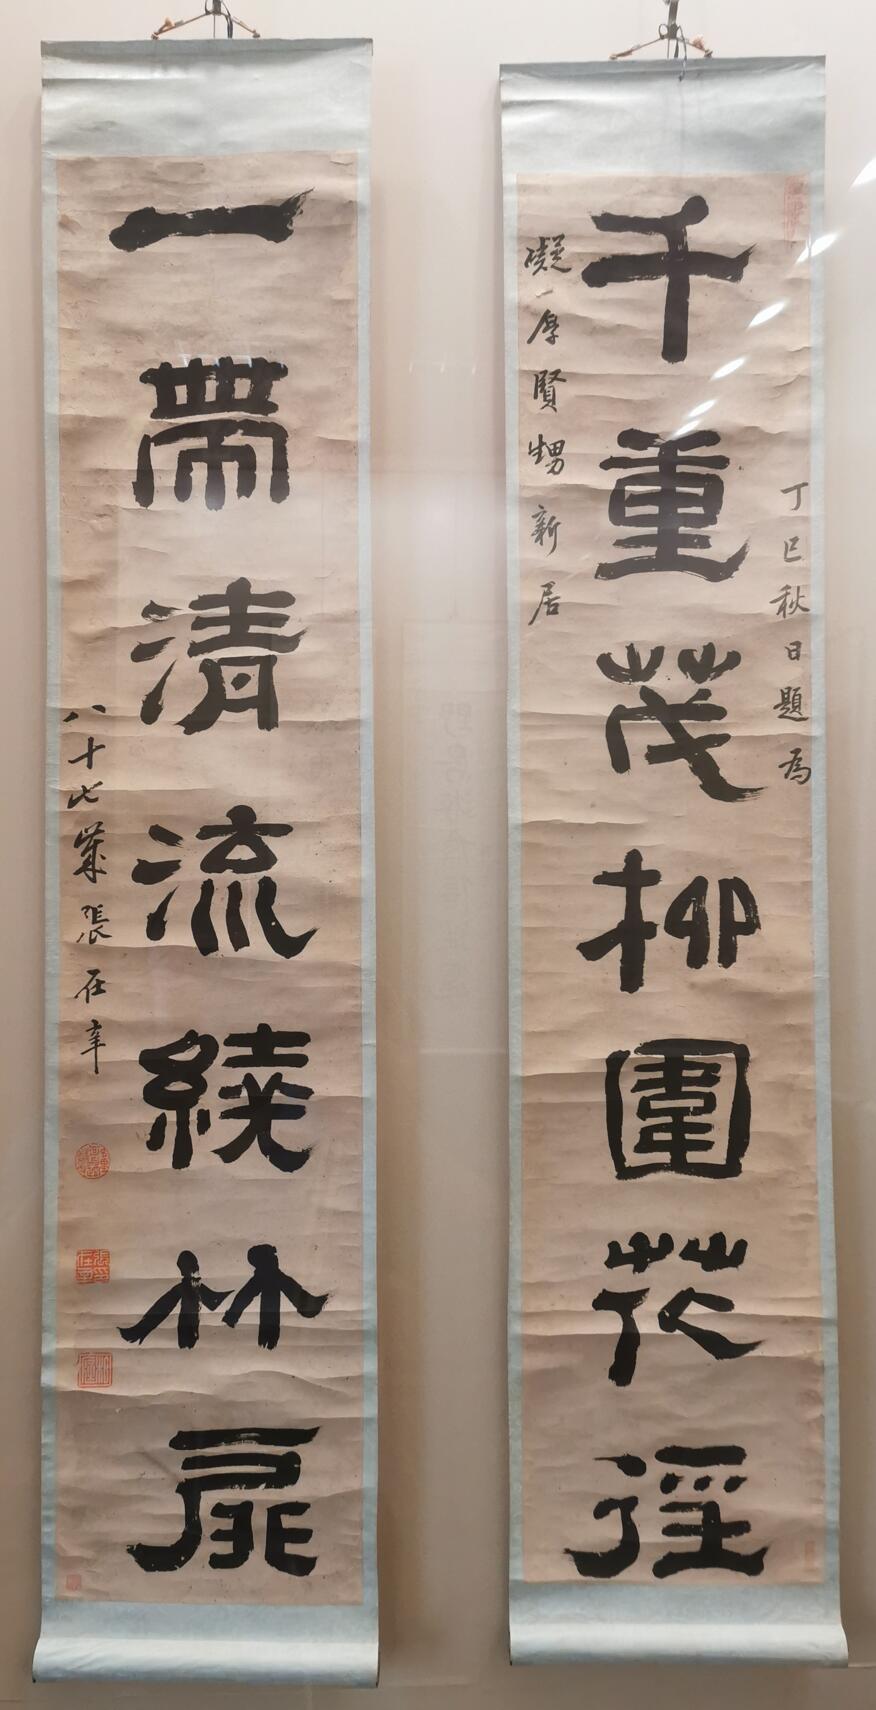 千重茂柳圍花徑
丁巳秋日題為
凝厚賢甥新居
一帶清流繞林扉
八十七歲張在辛